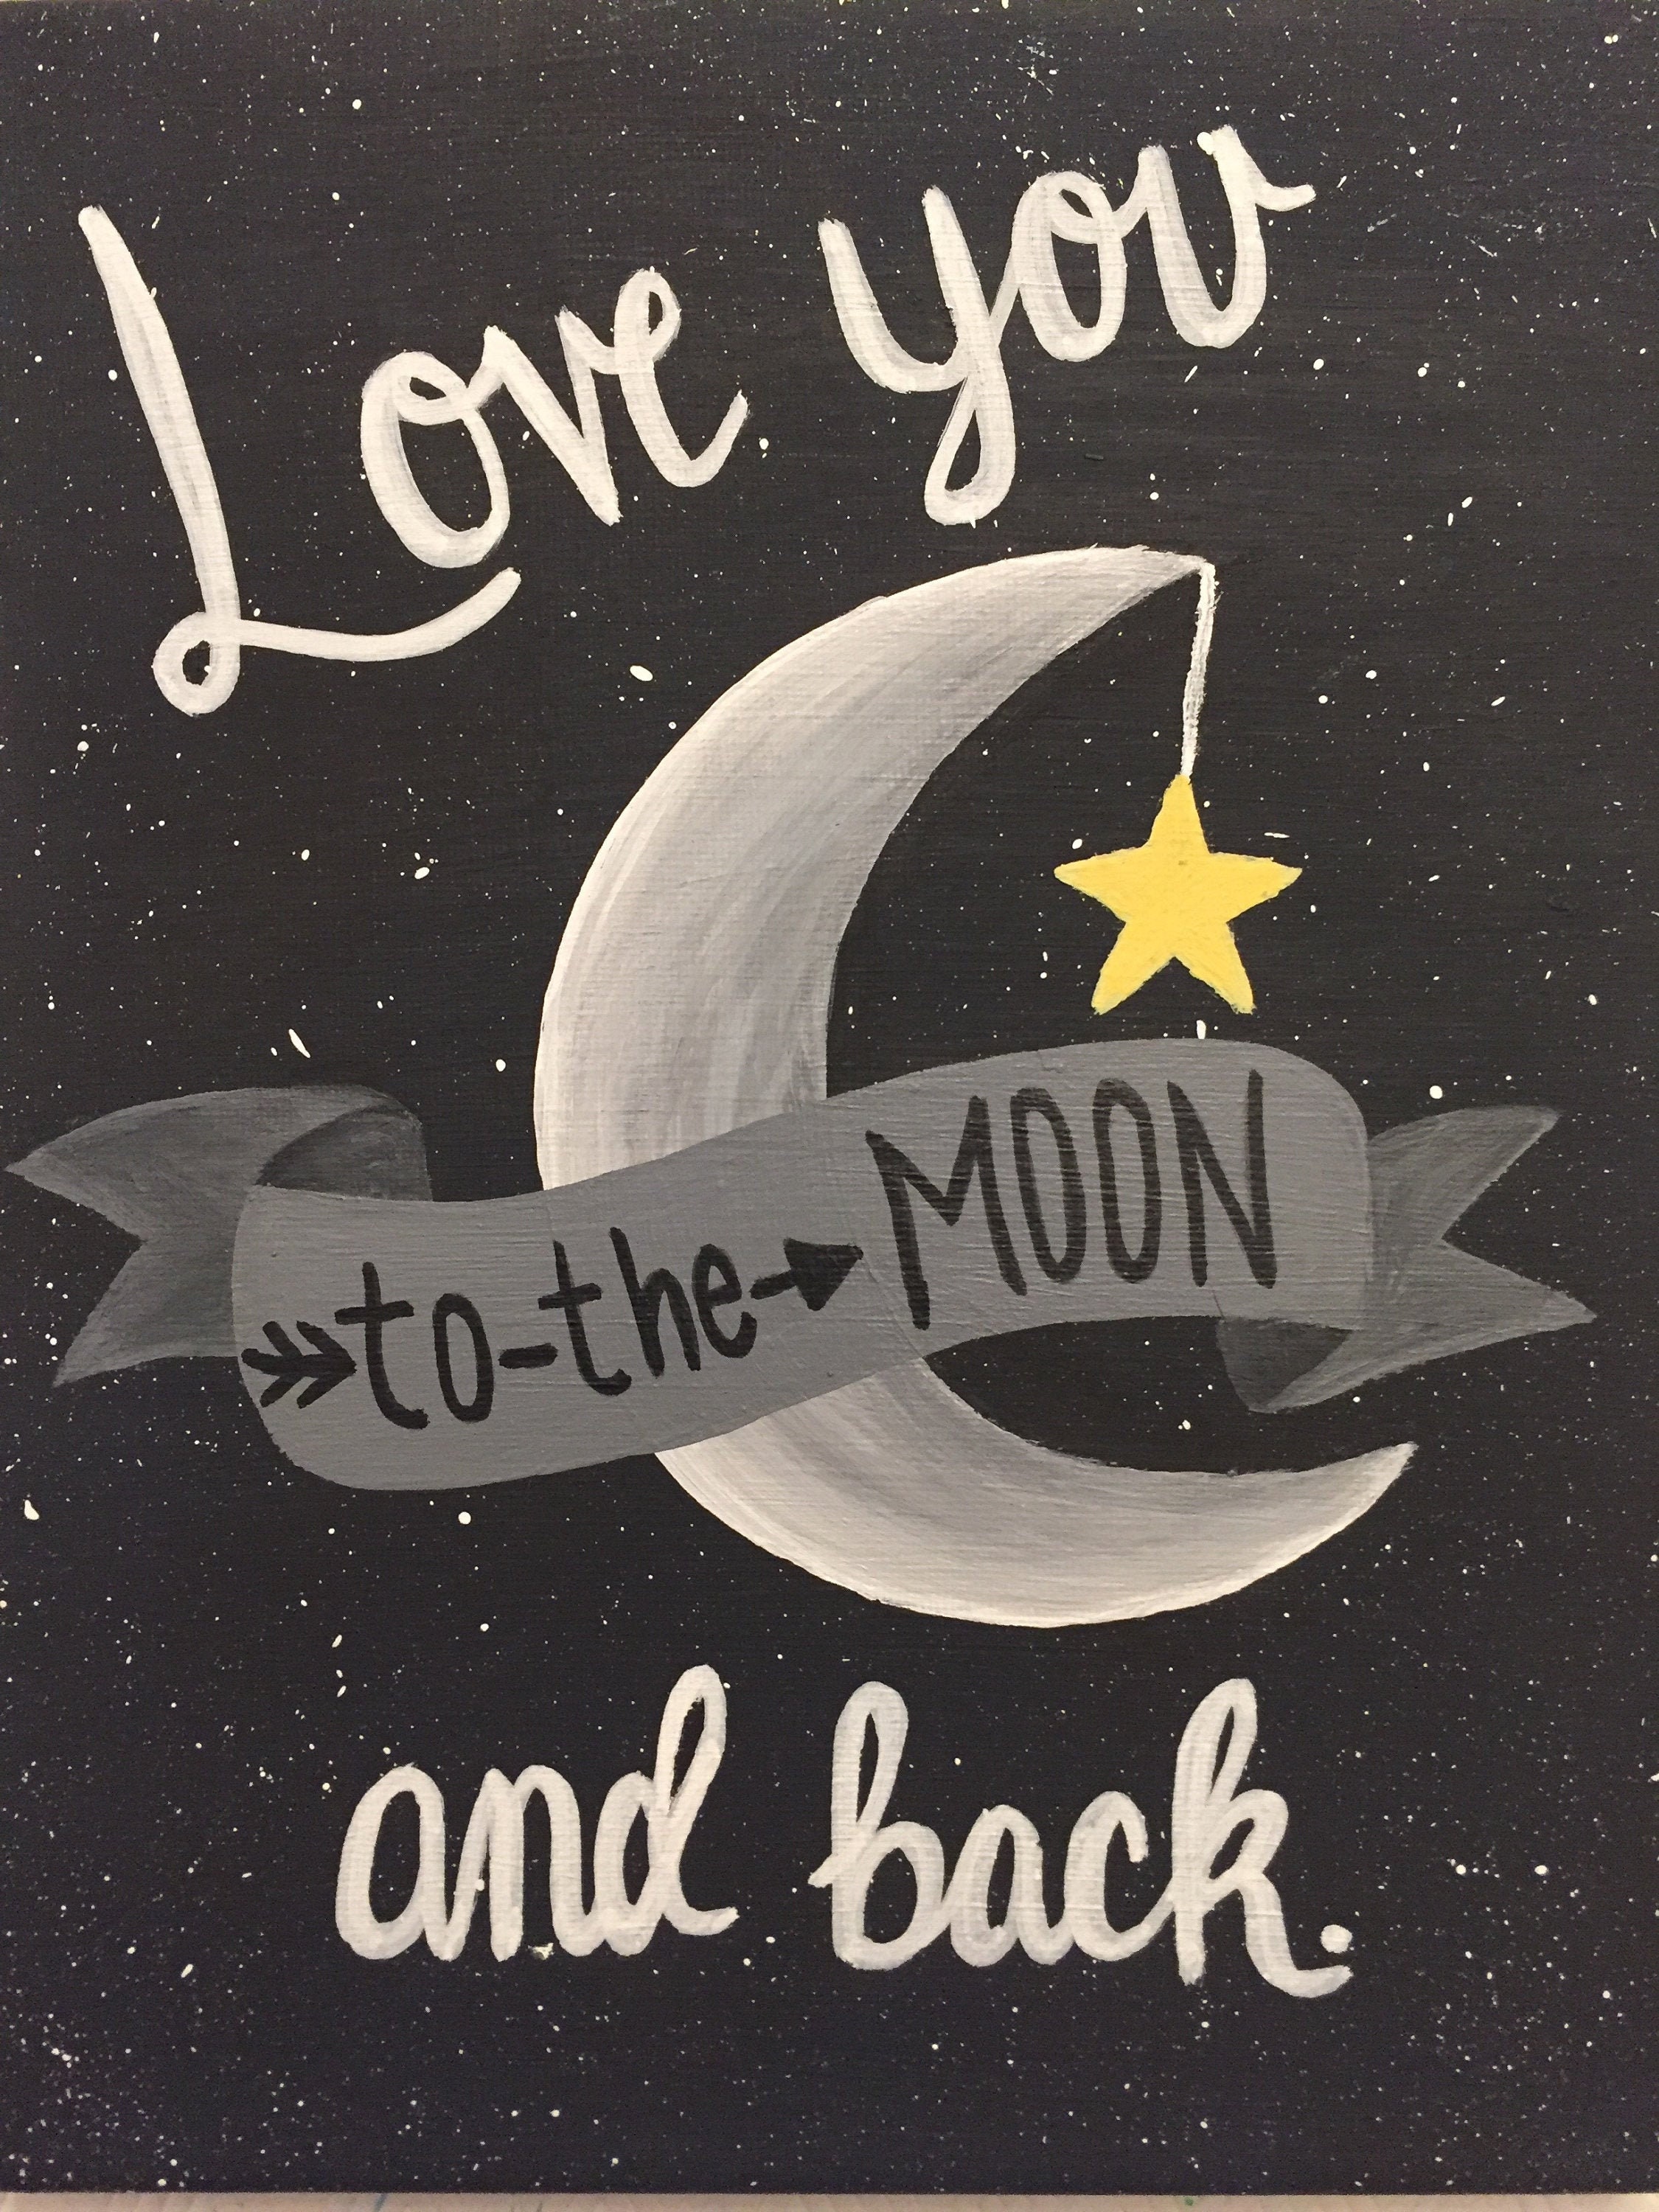 Love you
to-the MOON
and back.